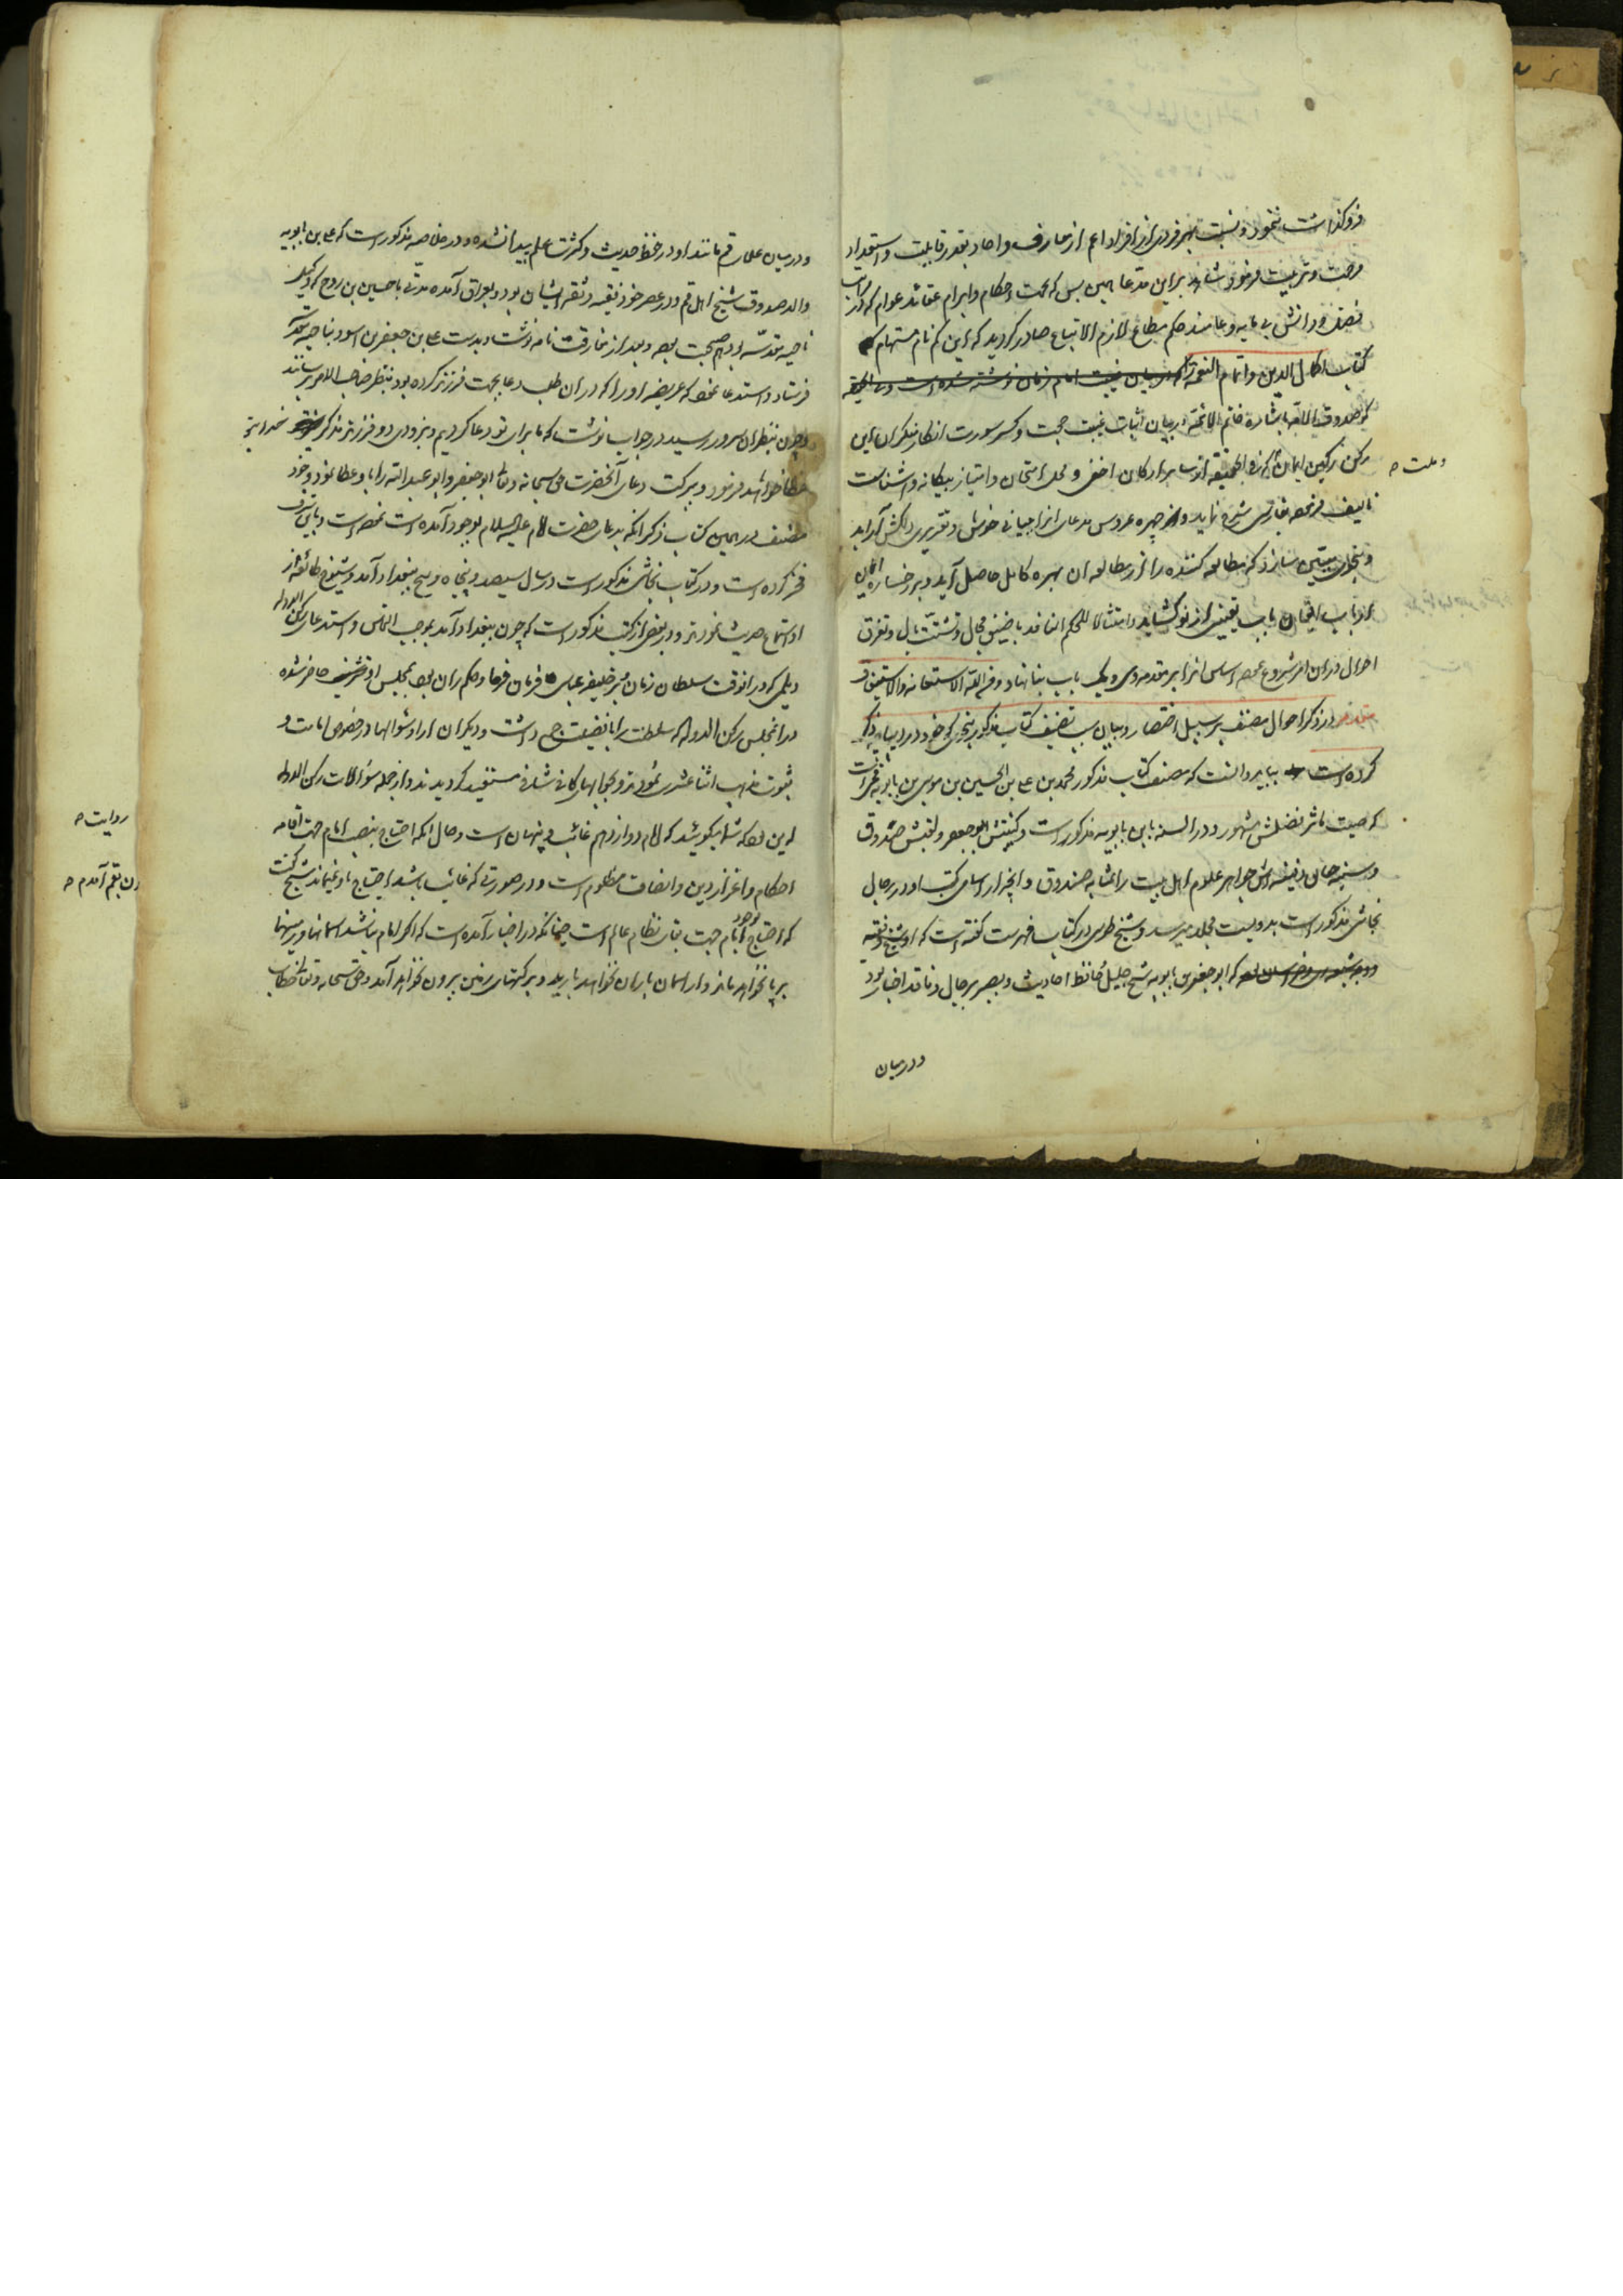 فروکذاشت ننمود و نسبت بهر فردی از افراد اعم از معارف و احاد بقدر قابلیت و استعداد
مرحمت و تربیت فرمود شاهد برین مدعا همین بس که بجهت احکام و ابرام عقائد عوام که از
فضل و دانش بی مایه و عامیند حکم مطاع لازم الاتباع صادر کردید که این کم نام مستهام
کتاب اکمال الدین و اتمام النعمة را که در بیان غیبت امام زمان نوشته شده است و فی الحقیقه
صدوق الطائفه باشاره خاتم الائمه در بیان اثبات غیبت حجت و کسر سورت انکار منکران این
رکن رکین ایمان که فی الحقیقه از سایر ارکان اخفی و محل امتحان و امتیاز بیکانه و اشناست
و ملت
تالیف فرموده بفارسی شرح نماید و از چهره عروس مدعای انرا ببیانی خوش و تقریری دلکش آراید
و بنحوی مبین سازد که مطالعه کننده را از مطالعه ان بهره کامل حاصل آید و بر رخساره ایمان
ارباب ایقان باب یقینی از نو کشاید و امتثالا للحکم النافذ با ضیق مجال و تشتت بال و تفرق
احوال در این امر شروع نموده اساس انرا بر مقدمه و یک باب بنا نهاد و من الله الاستعانه و الاستیفاق
مقدمه در ذکر احوال مصنف بر سبیل اختصار و بیان سبب تصنیف کتاب مذکور بنحوی که خود در دیباچه ذکر
کرده است بباید دانست که مصنف کتاب مذکور محمد بن علی بن الحسین بن موسی بن بابویه قمی است
که صیت ماثر فضلش مشهور و در السنه بابن بابویه مذکور است و کنیتش ابو جعفر و لقبش صدوق
و سینه جواهر علوم اهل بیت را بمثابه صندوق و انچه از اسامی کتب او در رجال
نجاشی مذکور است بدویست مجلد میرسد و شیخ طوسی در کتاب فهرست کفته است که او شیخ و فقیه
که ابو جعفر بن بابویه شیخ جلیل حافظ احادیث و بصیر برجال و ناقد اخبار بود
و در میان
و در میان علمای قم مانند او در حفظ حدیث و کثرت علم پیدا نشده و در خلاصه مذکور است که علی بن بابویه
والد صدوق شیخ اهل قم و در عصر خود فقیه و ثقه ایشان بود و بعراق آمده مدتی با حسین بن روح که وکیل
ناحیه مقدسه بود هم صحبت بود و بعد از مفارقت نامه نوشت و بدست علی بن جعفر بن اسود بناحیه مقدسه
فرستاد و استدعا نمود که عریضه او را که در ان طلب دعا بجهت فرزند کرده بود بنظر صاحب الامر برساند
و چون بنظر ان سرور رسید در جواب نوشت که ما برای تو دعا کردیم و بزودی دو فرزند مذکر خدا بتو
عطا خواهد فرمود و ببرکت دعای آنحضرت حق سبحانه و تعالی ابو جعفر و ابو عبد الله را باو عطا نمود و خود
مصنف در همین کتاب ذکر انکه بدعای حضرت امام علیه السلام بوجود آمده است نموده است و باین شرف
فخر کرده است و در کتاب نجاشی مذکور است در سال سیصد و پنجاه و پنج ببغداد آمد و شیوخ طائفه از
او استماع حدیث نمودند و در بعضی از کتب مذکور است که چون ببغداد آمد بموجب التماس و استدعای رکن الدوله
دیلمی که در انوقت سلطان زمان و بر خلیفه عباسی فرمان فرما و حکمران بود بمجلس او حاضر شده
در انمجلس رکن الدوله که سلطنت را با فضیلت جمع داشت و دیکران از او سؤالها در خصوص امامت و
ثبوت مذهب اثنا عشری نمودند و بجوابهای کافی شافی مستفید کردیدند و از جمله سؤالات رکن الدوله
روایت
این بود که شما میکوئید که امام دوازدهم غائب و پنهان است و حال انکه احتیاج بنصب امام جهت اقامه
احکام و اعزاز دین و انصاف مظلوم است و در صورتی که غائب باشد احتیاج باو نمیماند شیخ کفت
که احتیاج بوجود امام جهت بقای نظام عالم است چنانکه در اخبار آمده است که اکر امام نباشد اسمانها و زمینها
بر پا نخواهد ماند و از اسمان باران نخواهد بارید و برکتهای زمین بیرون نخواهد آمد و حق سبحانه و تعالی خطاب